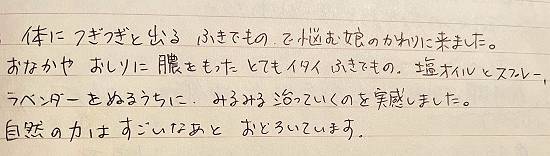 体につぎつぎと出る ふきでもので悩む娘のかわりに来ました。
おなかや おしりに膿をもった とてもイタイ ふきでもの。塩オイルとスプレー、
ラベンダーをぬるうちに、みるみる治っていくのを実感しました。
自然の力はすごいなあと おどろいています。